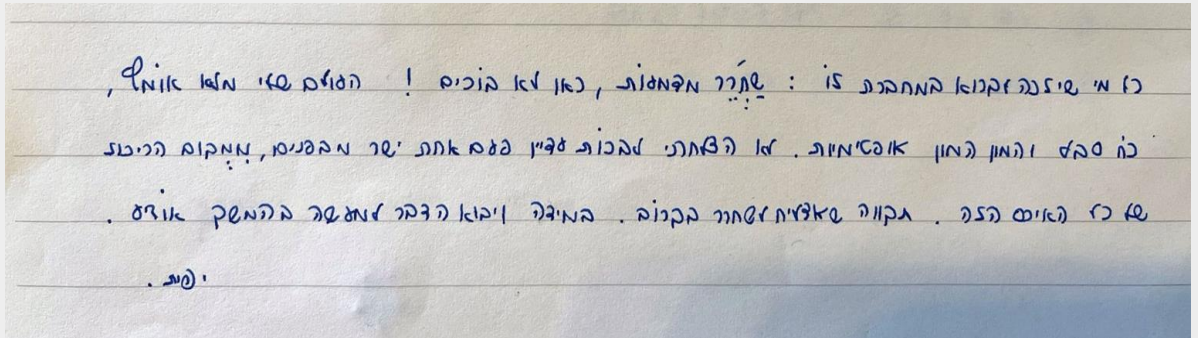 כל מי שיזכה לקרוא במחברת זוֹ : שַׁחְרֵר מדמעוֹת, כאן לא בוֹכים ! העולם שלי מלא אוֹמץ,
כח סבל והמון המון אופטימיות. לא הצלחתי לבכוֹת עדיין פעם אחת ישר מבפנים, מִמְּקום הריכוז
של כל האיכס הזה. תקווה שאצליח לשחרר בקרוֹב. במידה ויבוא הדבר למעשה בהמשך אוֹדע.
יפית.